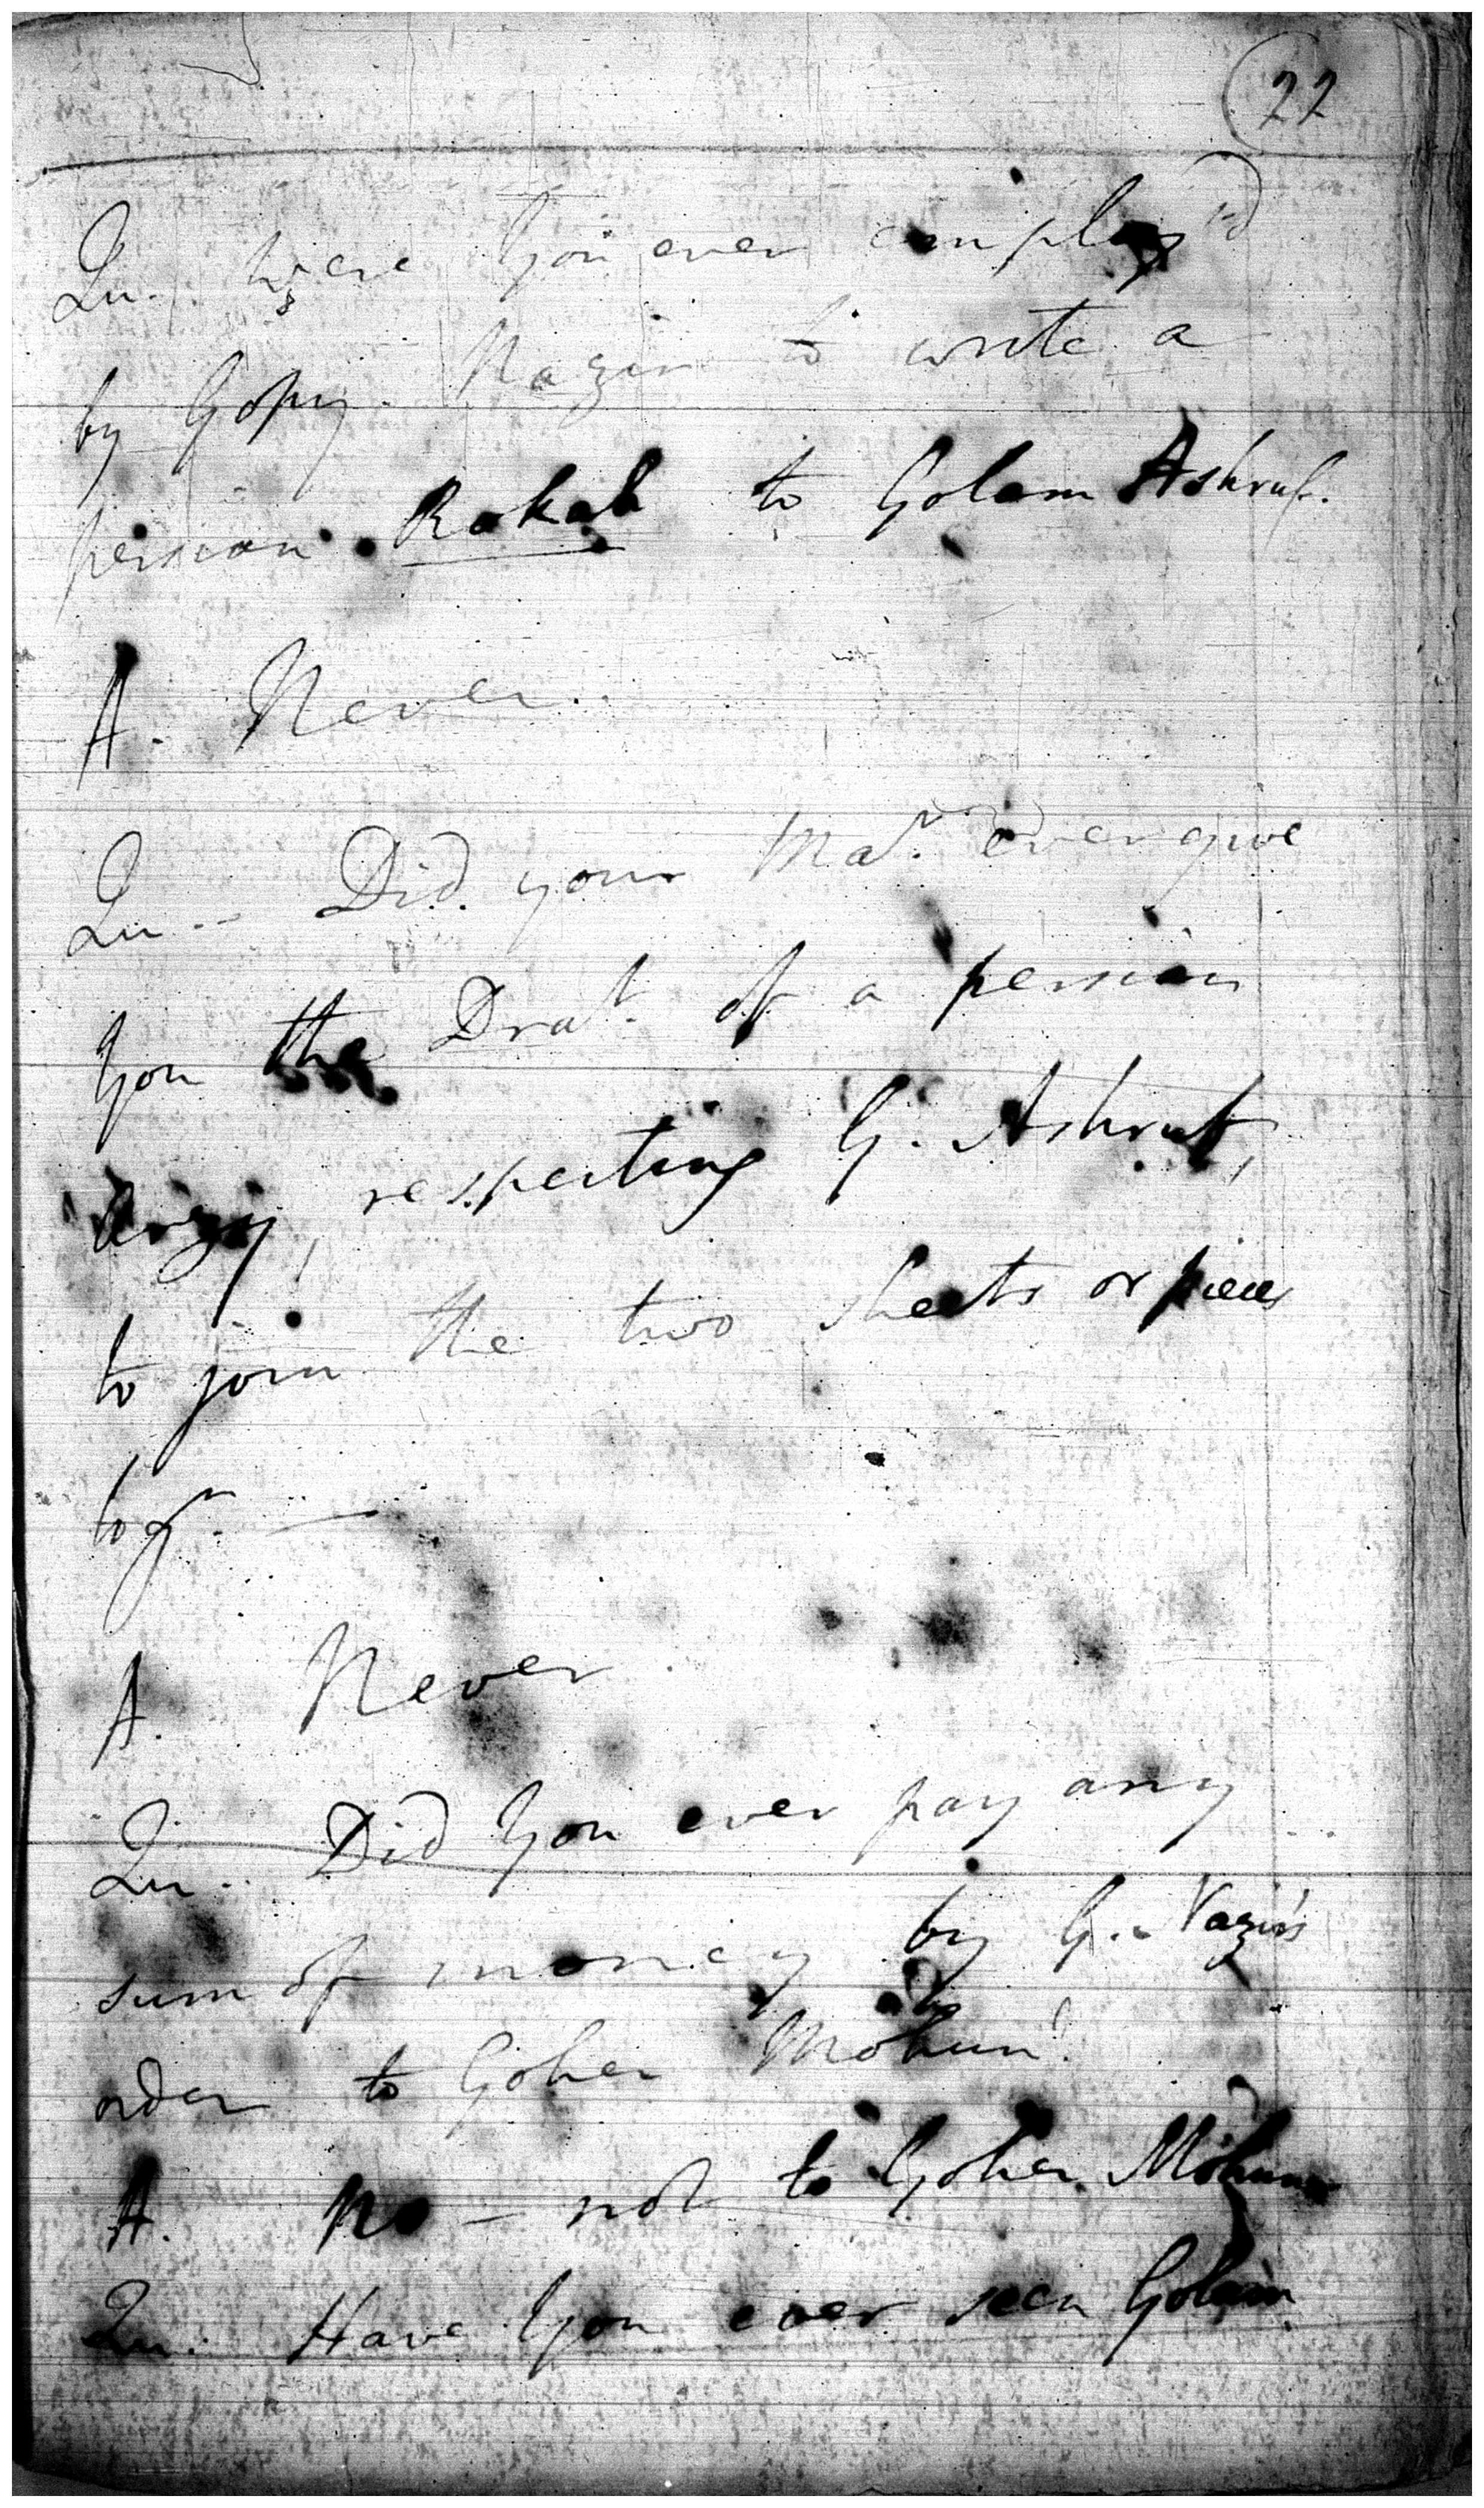 22
Qu. were you ever employ'd
by Gopy Nazir to write a
persian Rokah to Golam Ashruf.
A. Never.
Qu - Did your Mar. ever give
you the Drat. of a persian
Arzy, respecting G. Ashruf,
to join the two sheets or pieces
togr. —
A. Never
Qu. Did you ever pay any
sum of money by G. Nazir's
order to Goher Mohun?
A. No - not to Goher Mohun
Qu. Have you ever seen Golam